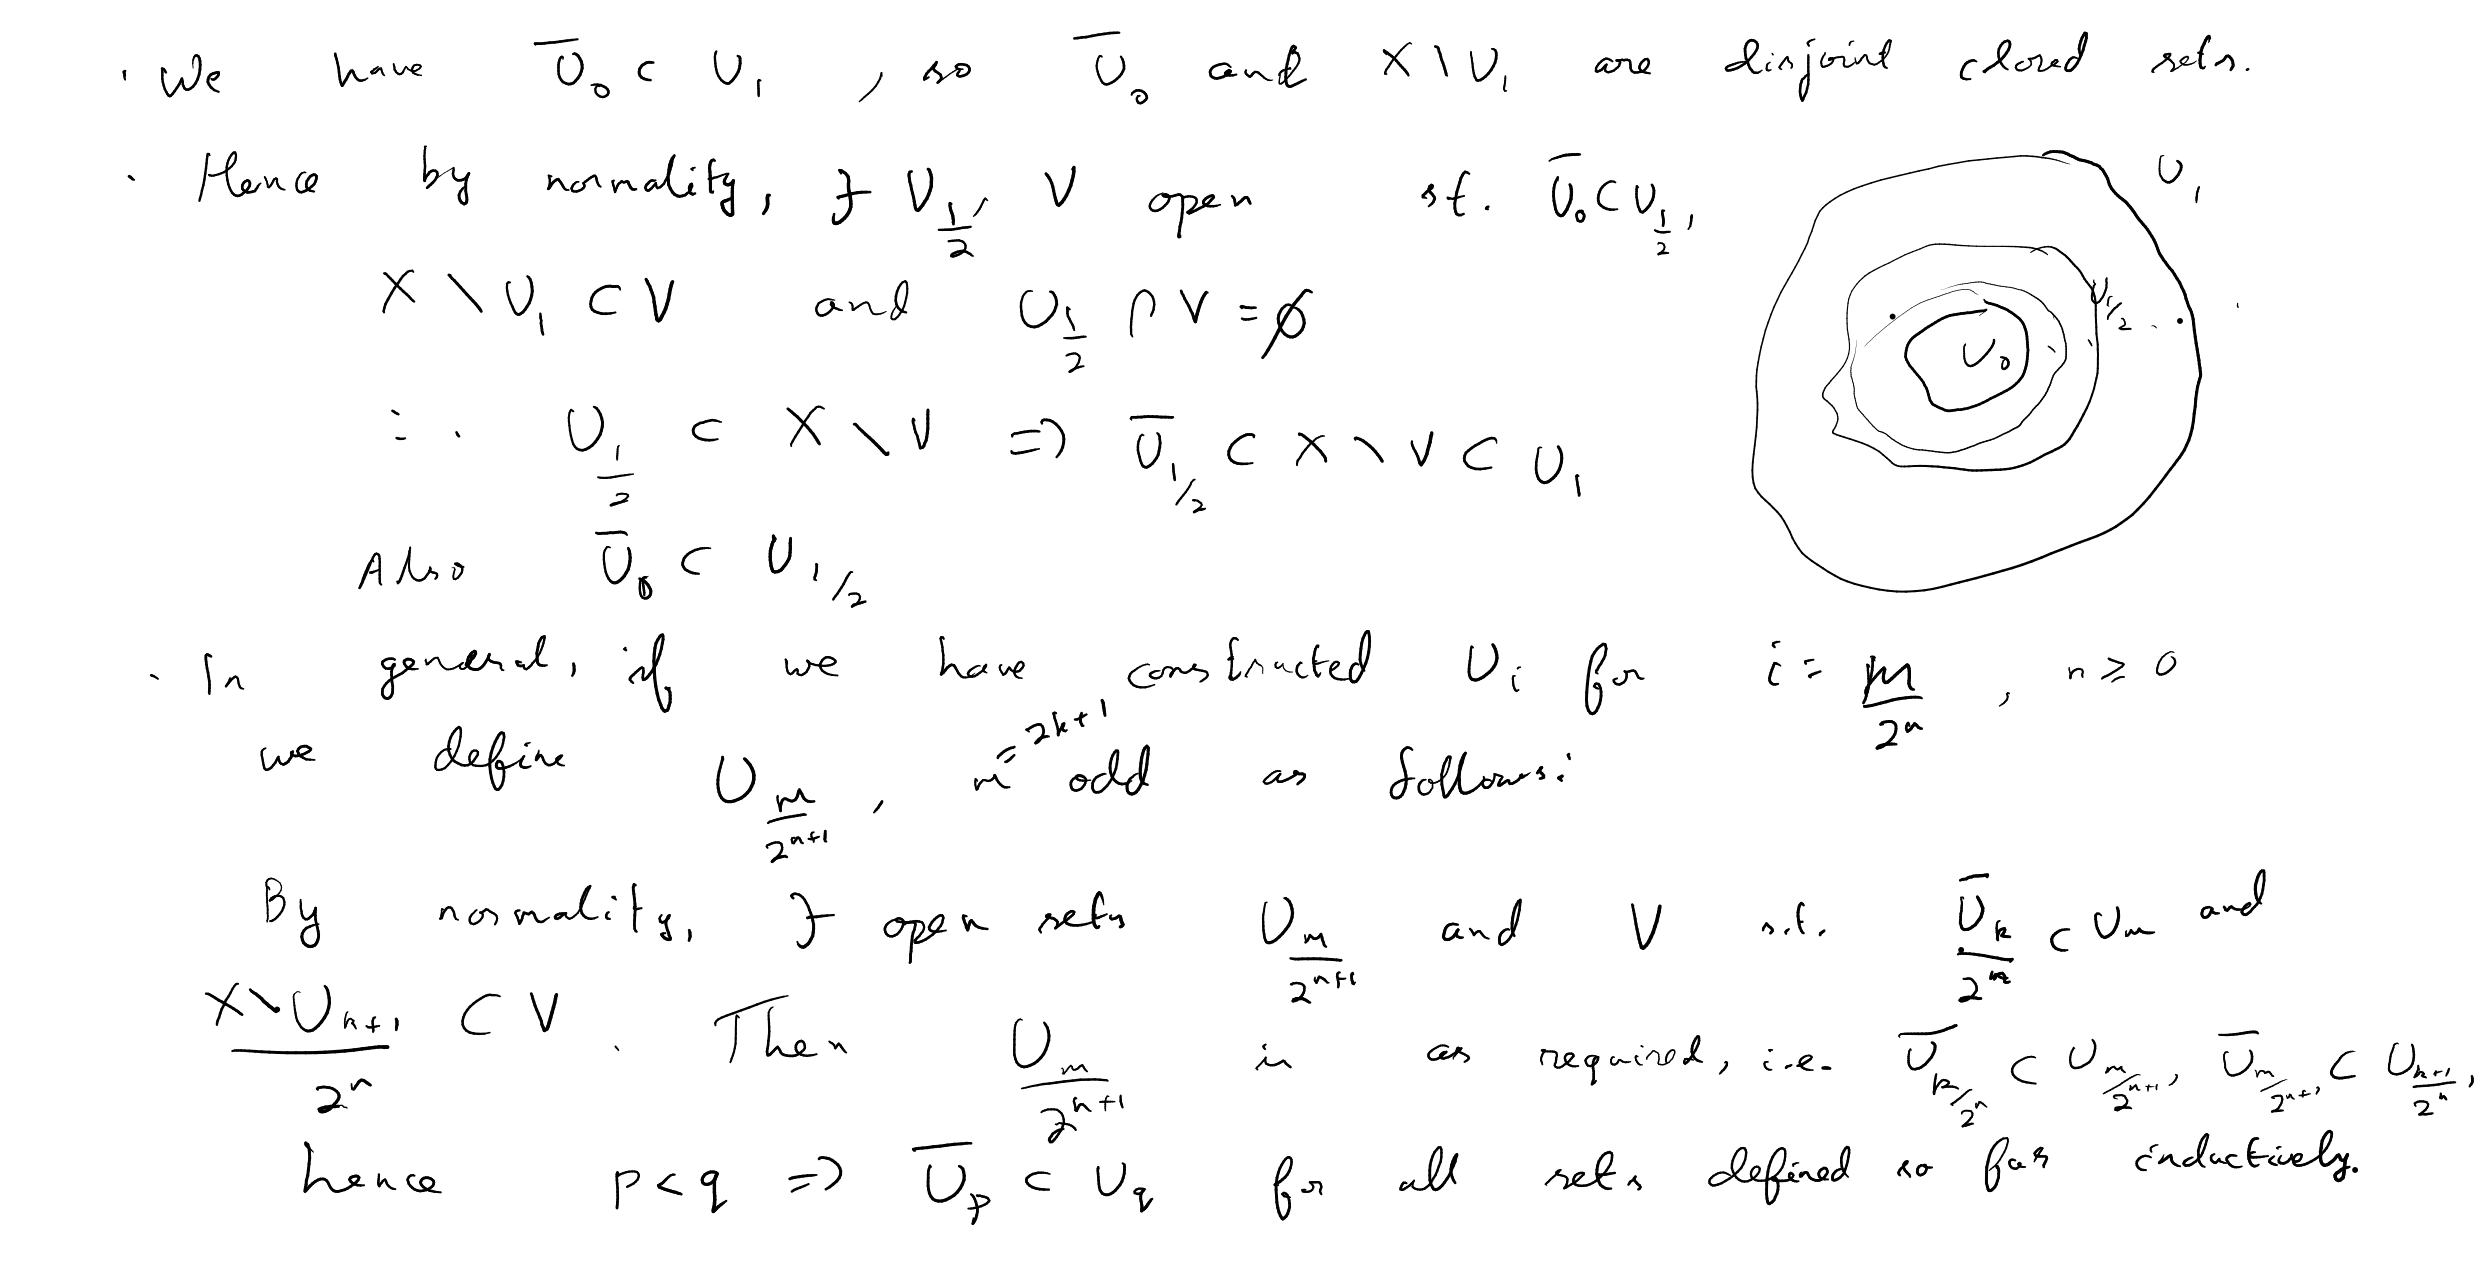 · We have U̅₀ ⊂ U₁, so U̅₀ and X∖U₁ are disjoint closed sets.
· Hence by normality, ∃ U_{1/2}, V open st. U̅₀ ⊂ U_{1/2},
U₁
X∖U₁ ⊂ V and U_{1/2} ∩ V = ∅
U_{1/2}
U₀
∴ U_{1/2} ⊂ X∖V ⇒ U̅_{1/2} ⊂ X∖V ⊂ U₁
Also U̅₀ ⊂ U_{1/2}
· In general, if we have constructed U_i for i = m/2ⁿ, n ≥ 0
we define U_{m/2^{n+1}}, m = 2k+1 odd as follows:
By normality, ∃ open sets U_{m/2^{n+1}} and V s.t. U̅_{k/2ⁿ} ⊂ U_m and
X∖U_{k+1/2ⁿ} ⊂ V. Then U_{m/2^{n+1}} is as required, i.e. U̅_{k/2ⁿ} ⊂ U_{m/2^{n+1}}, U̅_{m/2^{n+1}} ⊂ U_{k+1/2ⁿ},
hence p<q ⇒ U̅_p ⊂ U_q for all sets defined so far inductively.